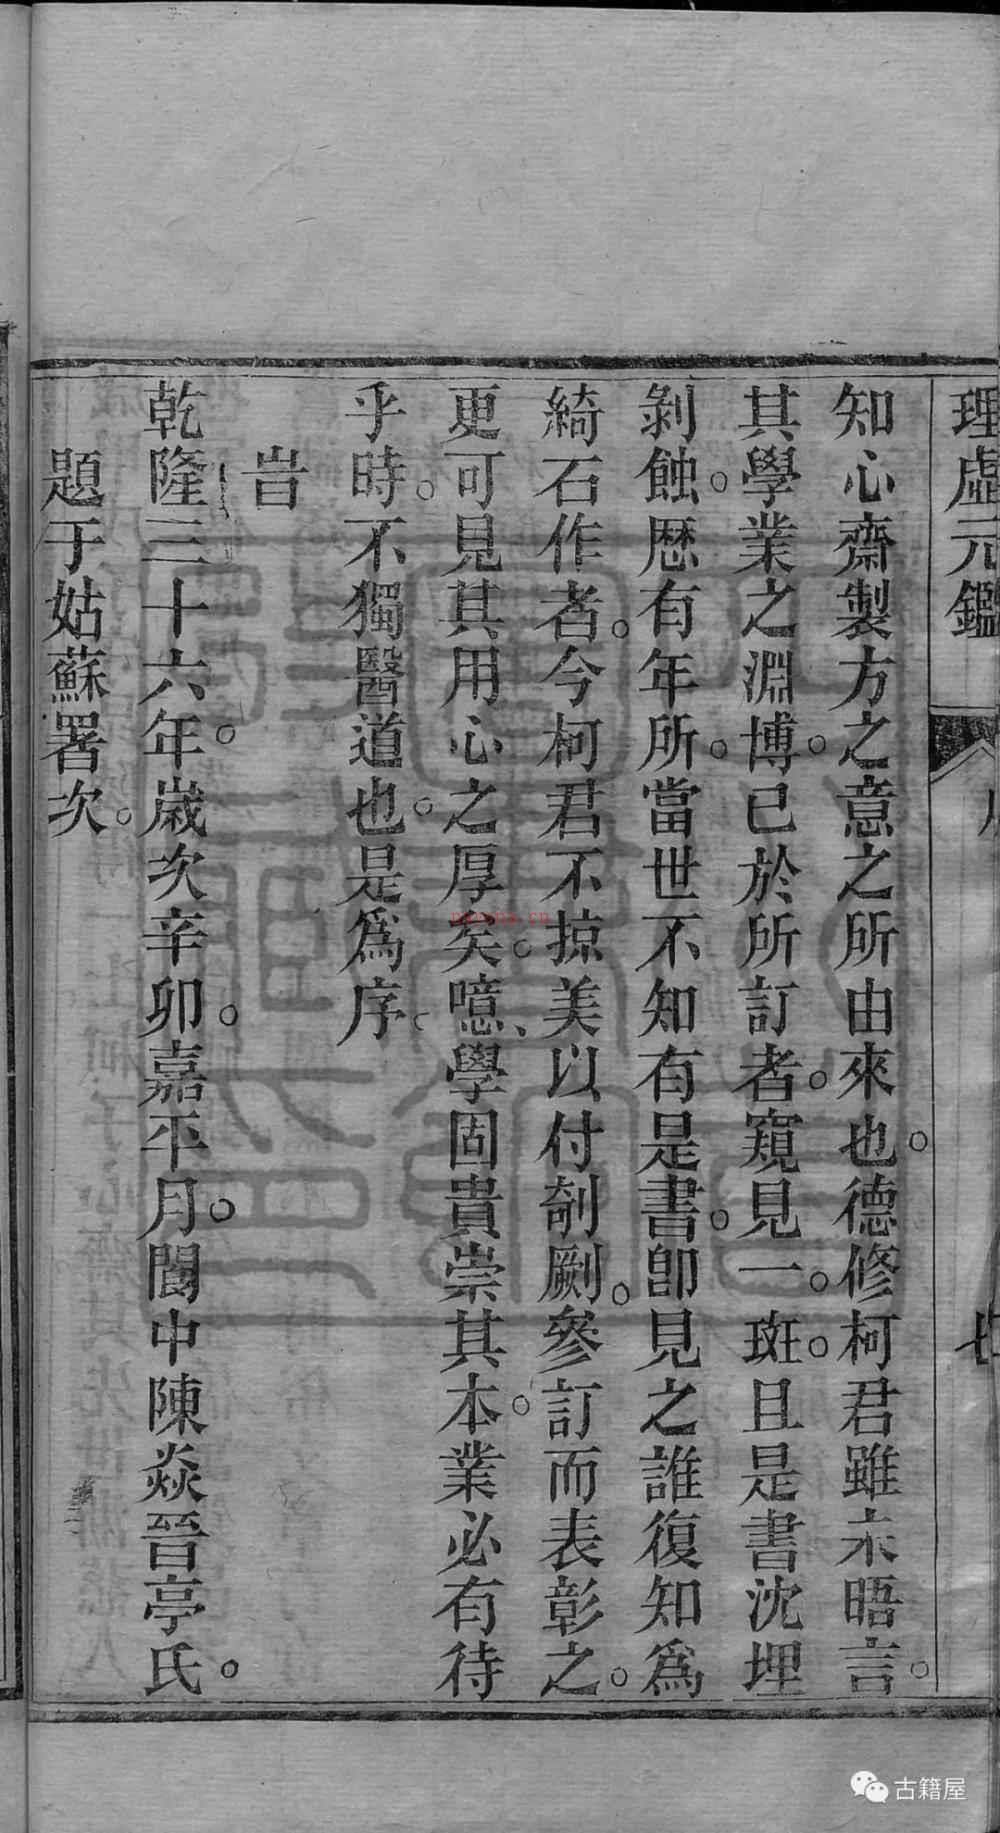 理虛元鑑
知心齋製方之意之所由來也。德修柯君雖未晤言。
其學業之淵博。已於所訂者。窺見一。斑。且是書沈埋
剝蝕。歷有年所。當世不知有是書。卽見之誰復知為
綺石作者。今柯君不掠美以付剞劂。參訂而表彰之。
更可見其用心之厚矣。噫、學固貴崇其本。業必有待
乎時。不獨醫道也。是爲序。
旹
乾隆三十六年。歲次辛卯。嘉平月。閩中陳焱晉亭氏。
題于姑蘇署次。
古籍屋